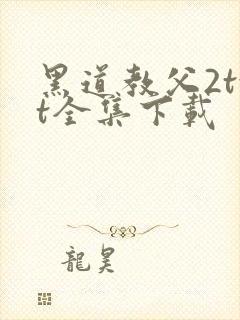 黑道教父2tx
t全集下載
龍昊